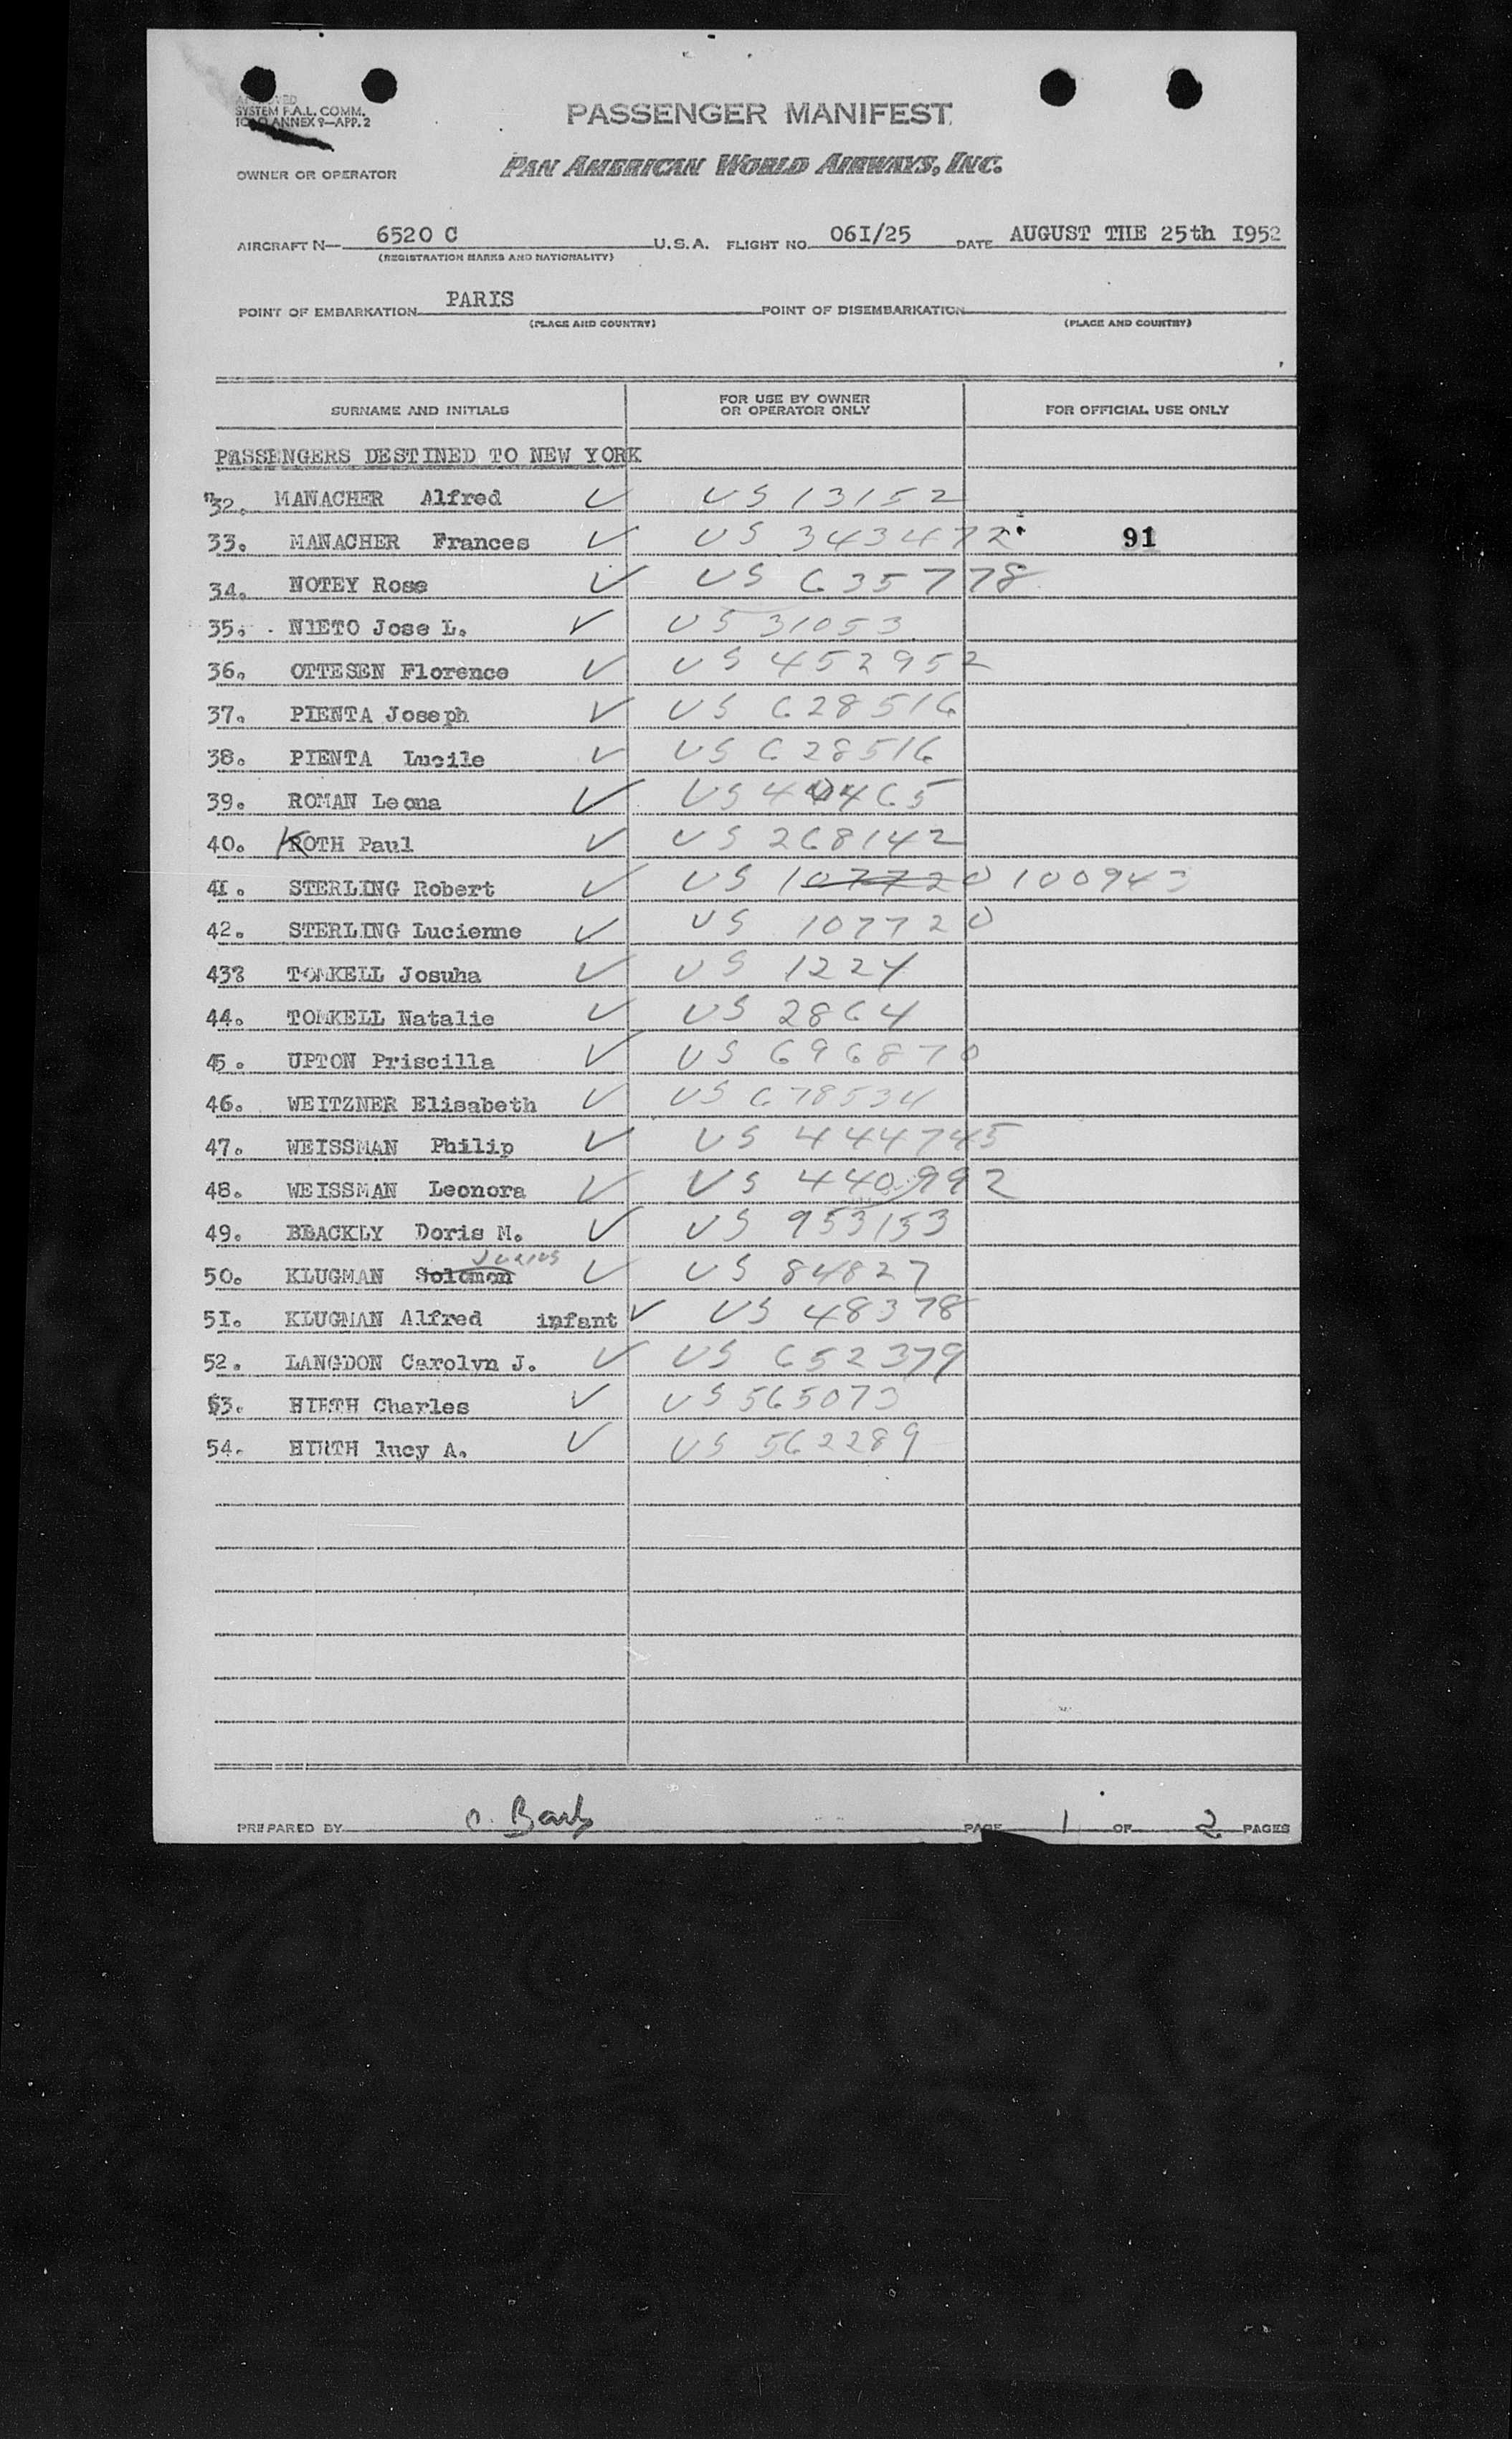 APPROVED
SYSTEM F.A.L. COMM.
ICAO ANNEX 9—APP. 2
PASSENGER MANIFEST
OWNER OR OPERATOR PAN AMERICAN WORLD AIRWAYS, INC.
AIRCRAFT N— 6520 C U.S.A. FLIGHT NO. 06I/25 DATE AUGUST THE 25th I952
(REGISTRATION MARKS AND NATIONALITY)
POINT OF EMBARKATION PARIS POINT OF DISEMBARKATION
(PLACE AND COUNTRY) (PLACE AND COUNTRY)
SURNAME AND INITIALS FOR USE BY OWNER OR OPERATOR ONLY FOR OFFICIAL USE ONLY
PASSENGERS DESTINED TO NEW YORK
32. MANACHER Alfred ✓ US 13152
33. MANACHER Frances ✓ US 343472 91
34. NOTEY Rose ✓ US 635778
35. NIETO Jose L. ✓ US 31053
36. OTTESEN Florence ✓ US 452952
37. PIENTA Joseph ✓ US 628516
38. PIENTA Lucile ✓ US 628516
39. ROMAN Leona ✓ US 440465
40. KOTH Paul ✓ US 268142
4I. STERLING Robert ✓ US 107720 100943
42. STERLING Lucienne ✓ US 107720
43? TOMKELL Josuha ✓ US 1224
44. TOMKELL Natalie ✓ US 2864
45. UPTON Priscilla ✓ US 696870
46. WEITZNER Elisabeth ✓ US 678534
47. WEISSMAN Philip ✓ US 444745
48. WEISSMAN Leonora ✓ US 440992
49. BLACKLY Doris M. ✓ US 953153
50. KLUGMAN Solomon Julius ✓ US 84827
5I. KLUGMAN Alfred infant ✓ US 48378
52. LANGDON Carolyn J. ✓ US 652379
53. HIRTH Charles ✓ US 565073
54. HIRTH lucy A. ✓ US 562289
PREPARED BY O. PAGE 1 OF 2 PAGES